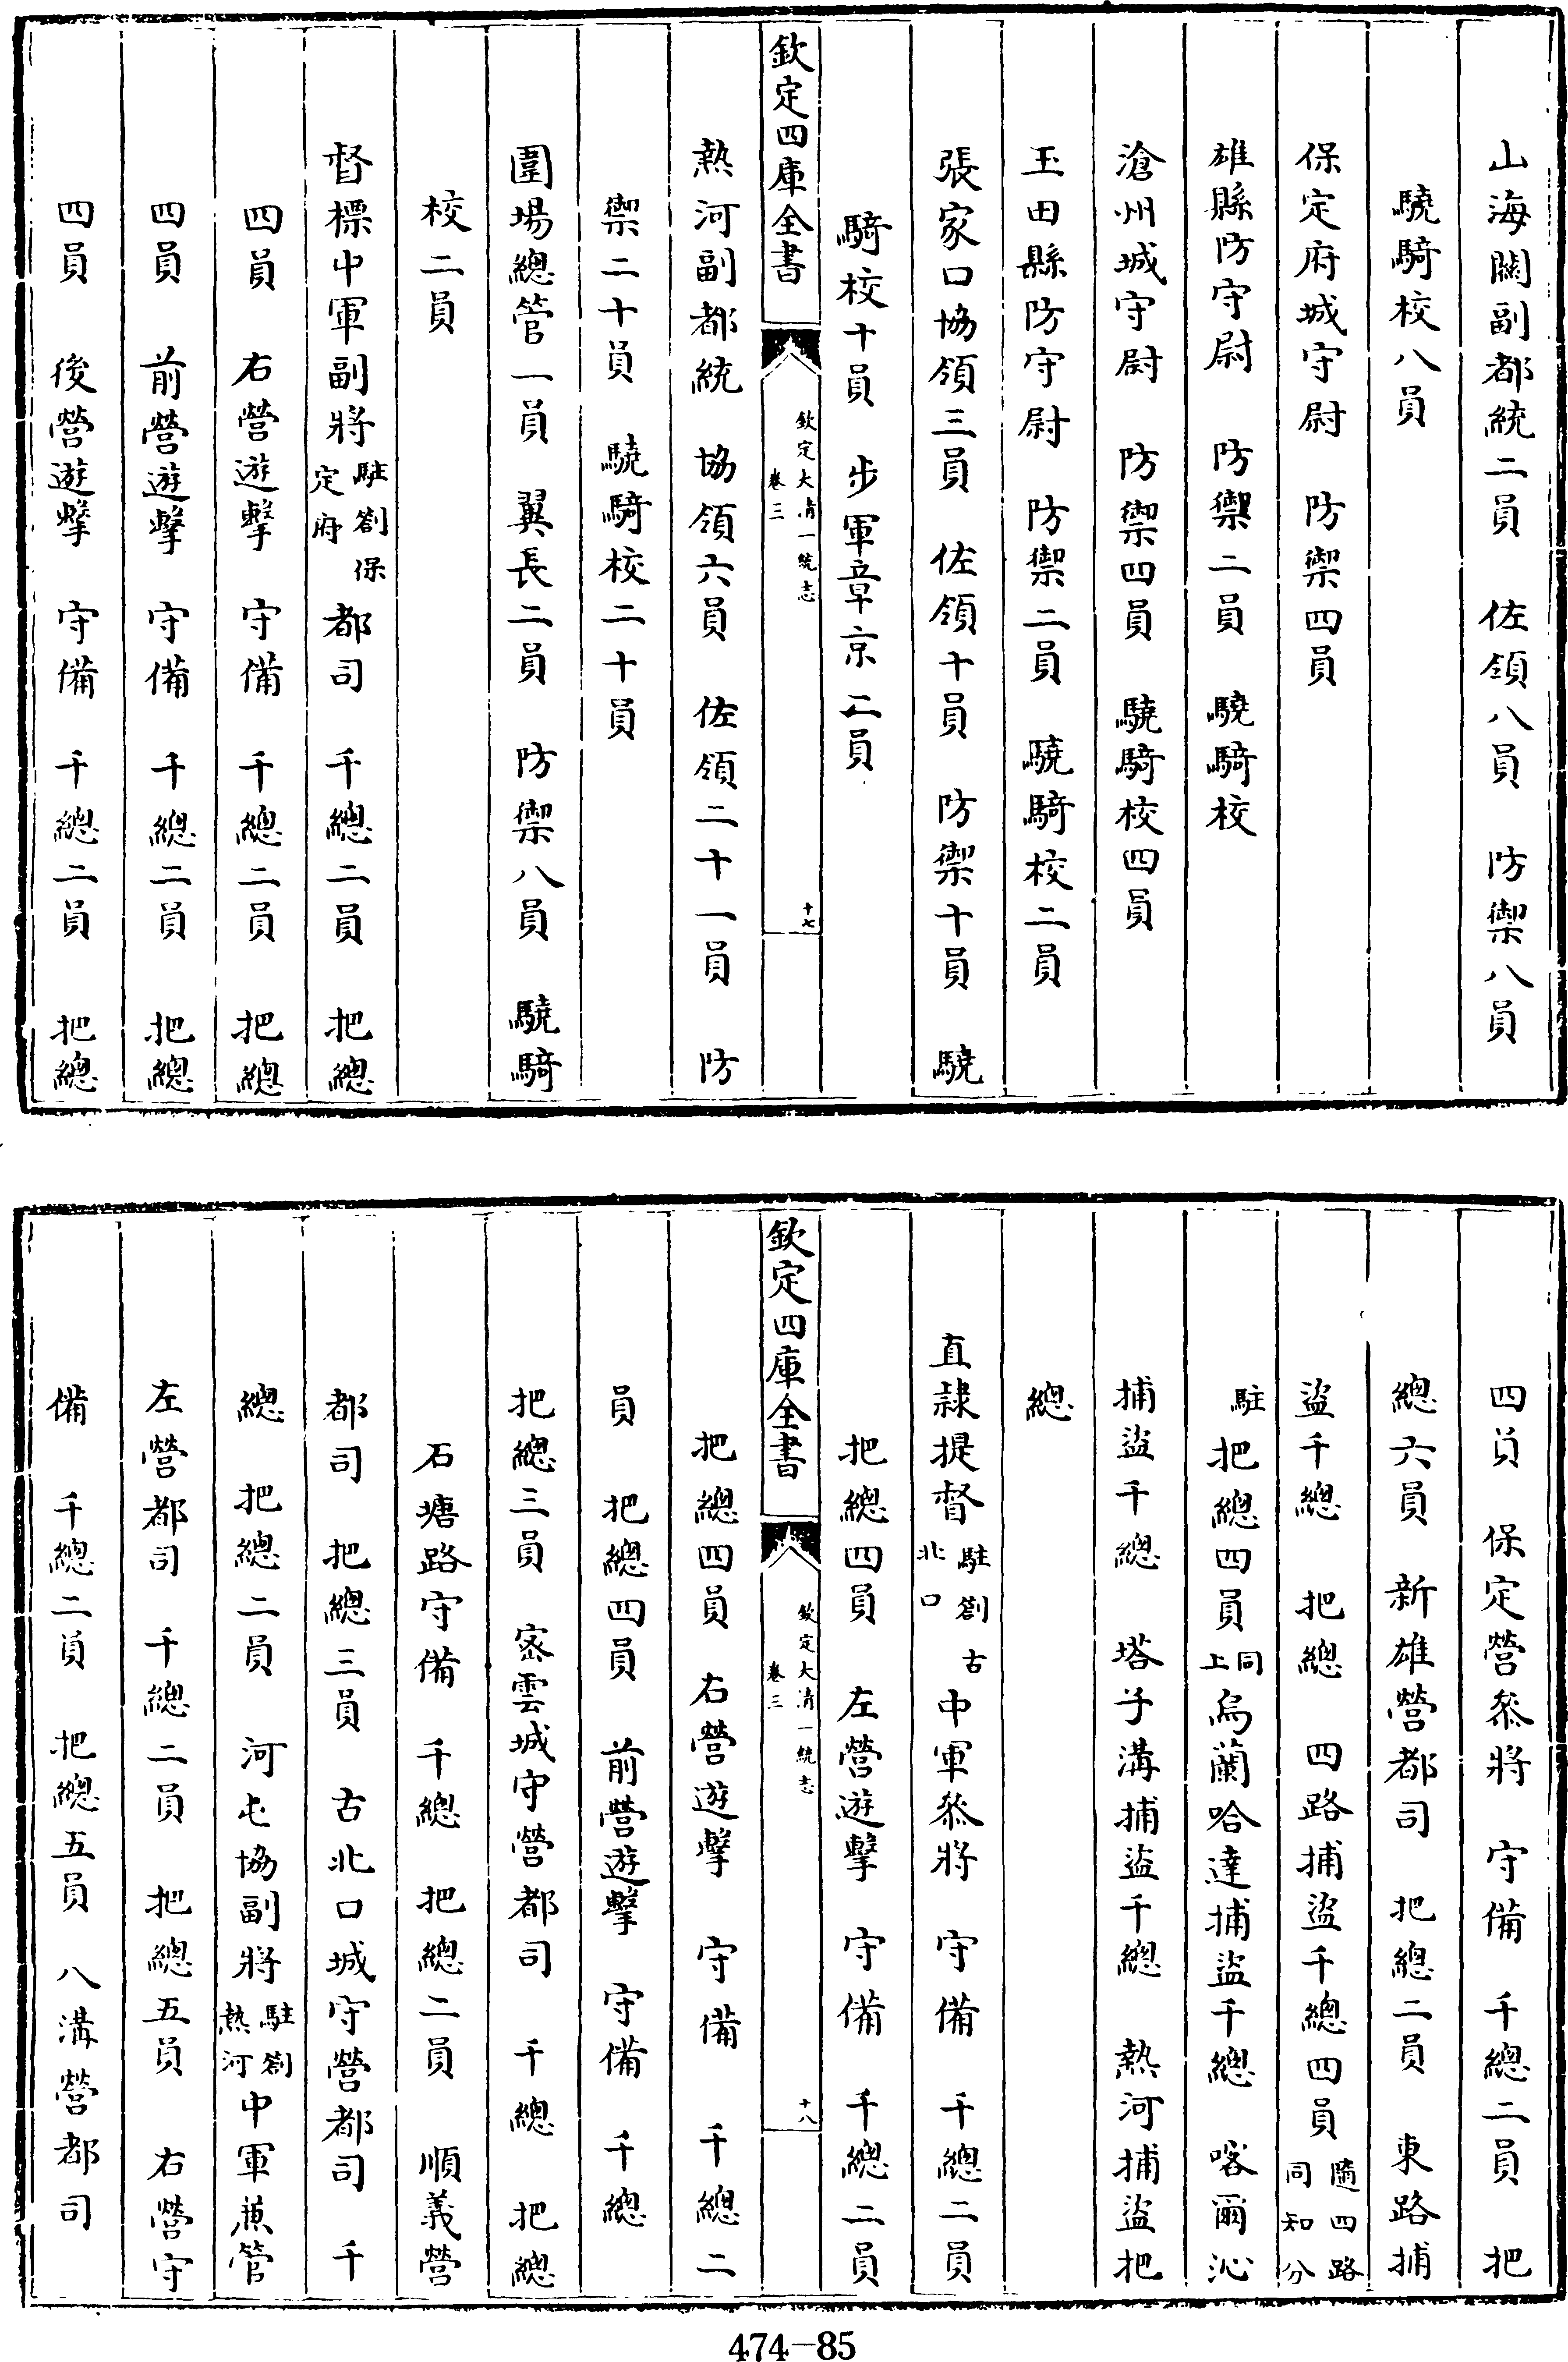 山海關副都統二員　佐領八員　防禦八員
驍騎校八員
保定府城守尉　防禦四員
雄縣防守尉　防禦二員　驍騎校
滄州城守尉　防禦四員　驍騎校四員
玉田縣防守尉　防禦二員　驍騎校二員
張家口協領三員　佐領十員　防禦十員　驍
騎校十員　步軍章京二員
欽定四庫全書
欽定大清一統志
卷三
十七
熱河副都統　協領六員　佐領二十一員　防
禦二十員　驍騎校二十員
圍場總管一員　翼長二員　防禦八員　驍騎
校二員
督標中軍副將駐劄保定府都司　千總二員　把總
四員　右營遊擊　守備　千總二員　把總
四員　前營遊擊　守備　千總二員　把總
四員　後營遊擊　守備　千總二員　把總
四員　保定營叅將　守備　千總二員　把
總六員　新雄營都司　把總二員　東路捕
盜千總　把總　四路捕盜千總四員隨四路同知分
駐把總四員同上烏蘭哈達捕盜千總　喀爾沁
捕盜千總　塔子溝捕盜千總　熱河捕盜把
總
直隷提督駐劄古北口中軍叅將　守備　千總二員
把總四員　左營遊擊　守備　千總二員
欽定四庫全書
欽定大清一統志
卷三
十八
把總四員　右營遊擊　守備　千總二
員　把總四員　前營遊擊　守備　千總
把總三員　宻雲城守營都司　千總　把總
石塘路守備　千總　把總二員　順義營
都司　把總三員　古北口城守營都司　千
總　把總二員　河屯協副將駐劄熱河中軍兼管
左營都司　千總二員　把總五員　右營守
備　千總二員　把總五員　八溝營都司
474-85